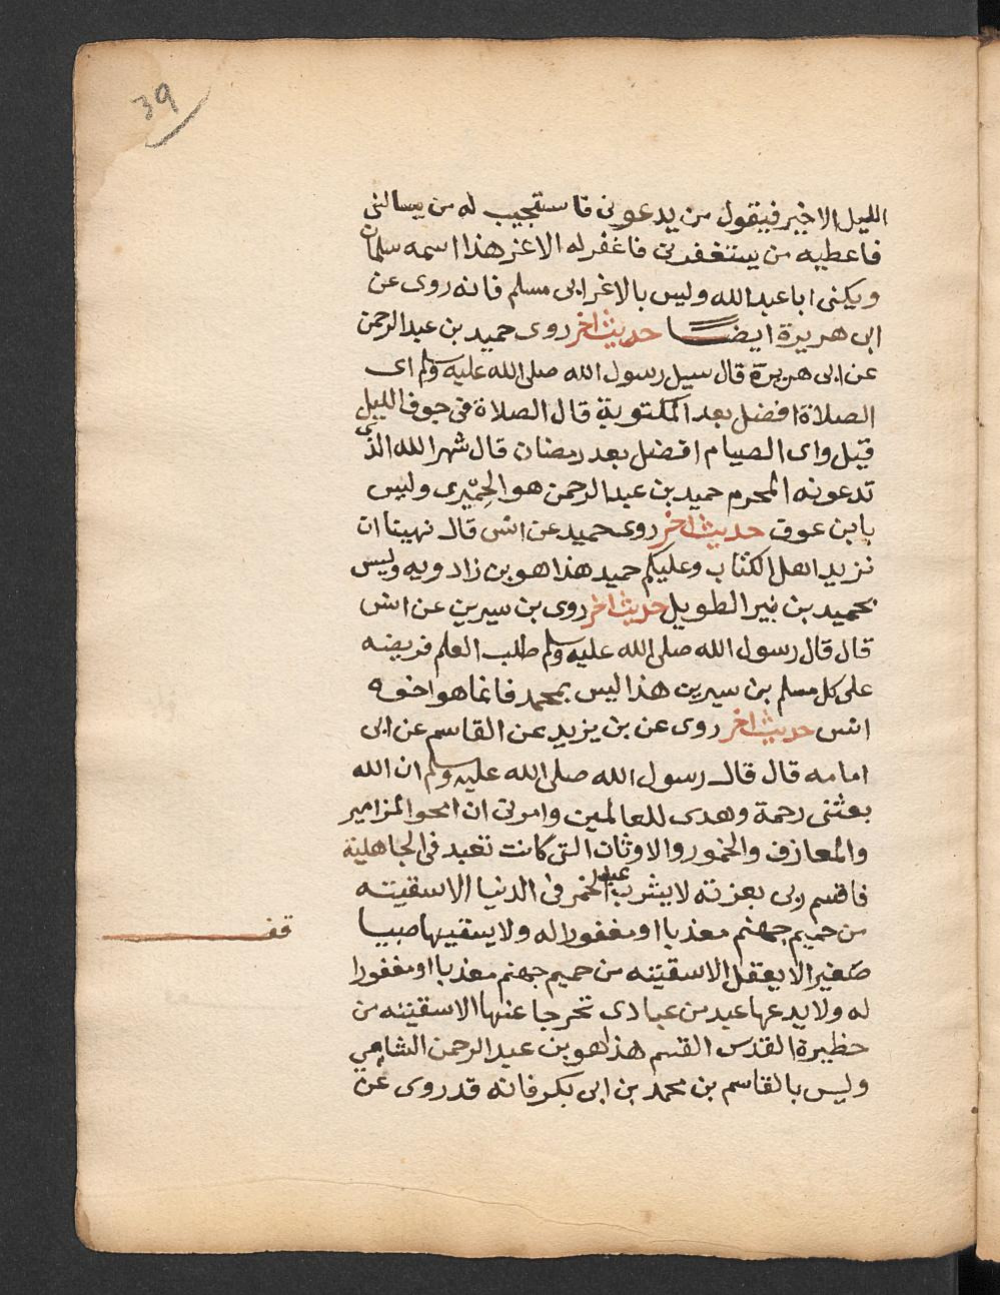 39
الليل الاخير فيقول من يدعونى فاستجيب له من يسالنى
فاعطيه من يستغفرنى فاغفر له الاغر هذا اسمه سلمان
ويكنى ابا عبد الله وليس بالاغر ابى مسلم فانه روى عن
ابى هريرة ايضا حديث اخر روى حميد بن عبد الرحمن
عن ابى هريرة قال سيل رسول الله صلى الله عليه وسلم اى
الصلاة افضل بعد المكتوبة قال الصلاة فى جوف الليل
قيل واى الصيام افضل بعد رمضان قال شهر الله الذى
تدعونه المحرم حميد بن عبد الرحمن هو الحميرى وليس
بابن عوف حديث اخر روى حميد عن انس قال نهينا ان
نزيد اهل الكتاب وعليكم حميد هذا هو بن زادويه وليس
بحميد بن تير الطويل حديث اخر روى بن سيرين عن انس
قال قال رسول الله صلى الله عليه وسلم طلب العلم فريضه
على كل مسلم بن سيرين هذا ليس بمحمد فانما هو اخوه
انس حديث اخر روى عن بن يزيد عن القاسم عن ابى
امامه قال قال رسول الله صلى الله عليه وسلم ان الله
بعثنى رحمة وهدى للعالمين وامرنى ان امحو المزامير
والمعازف والخمور والاوثان التى كانت تعبد فى الجاهلية
فاقسم ربى بعزته لا يشرب عبد الخمر فى الدنيا الا سقيته
من حميم جهنم معذبا او مغفورا له ولا يسقيها صبيا
قف
صغيرا لا يعقل الا سقيته من حميم جهنم معذبا او مغفورا
له ولا يدعها عبد من عبادى تحرجا عنها الا سقيته من
حظيرة القدس القسم هذا هو بن عبد الرحمن الشامى
وليس بالقاسم بن محمد بن ابى بكر فانه قد روى عن